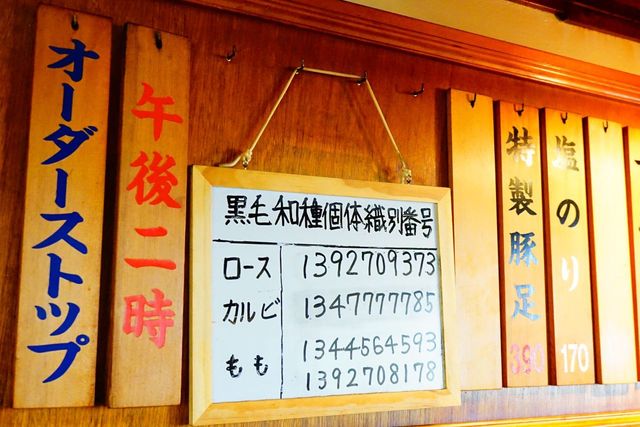 オーダーストップ
午後二時
黒毛和種個体織別番号
ロース 1392709373
カルビ 1347777785
もも 1344564593
1392708178
特製豚足 390
塩のり 170